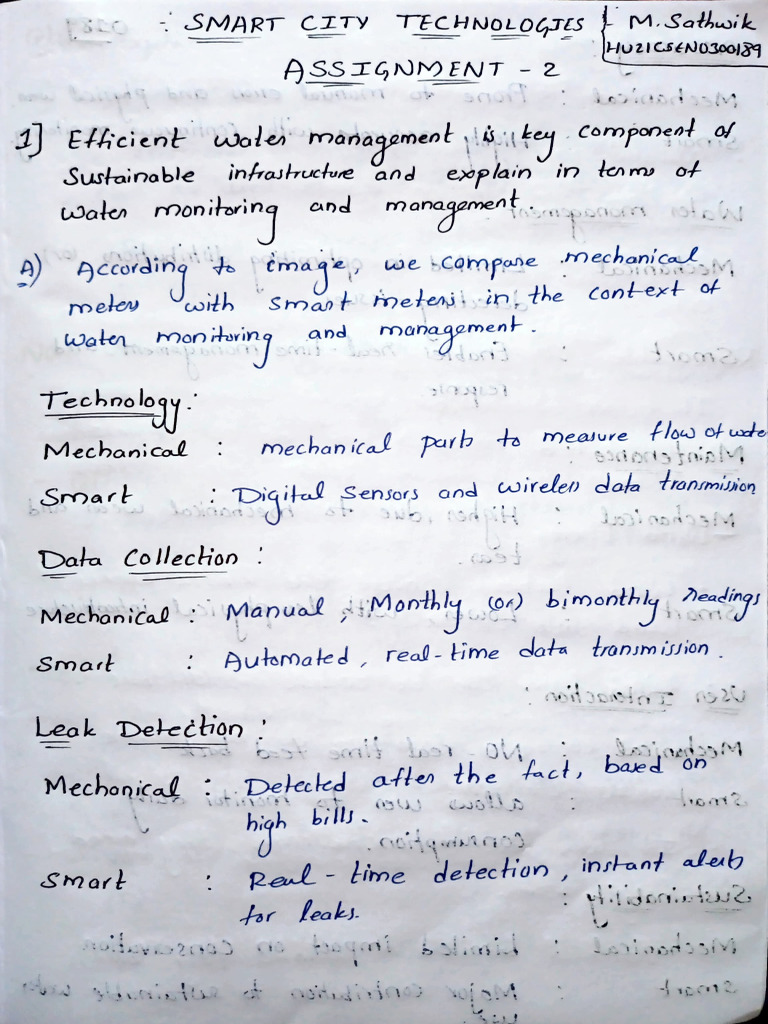 :- SMART CITY TECHNOLOGIES
M. Sathwik
HU21CSEN0300189
ASSIGNMENT - 2
1] Efficient water management is key component of
Sustainable infrastructure and explain in terms of
water monitoring and management.
A) According to image, we compare mechanical
meters with smart meters in the context of
water monitoring and management.
Technology:
Mechanical : mechanical parts to measure flow of water
Smart : Digital Sensors and wireless data transmission
Data Collection :
Mechanical : Manual, Monthly (or) bimonthly readings
Smart : Automated, real-time data transmission.
Leak Detection :
Mechanical : Detected after the fact, based on
high bills.
Smart : Real-time detection, instant alerts
for leaks.